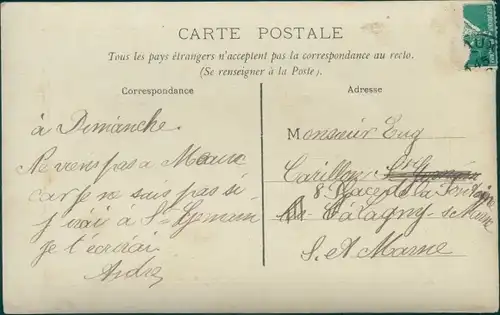 CARTE POSTALE
Tous les pays étrangers n'acceptent pas la correspondance au recto.
(Se renseigner à la Poste).
Correspondance
Adresse
à Dimanche.
Ne viens pas a Meaux
car je ne sais pas si
j'irai à St Germain
je t'écrirai
André
Monsieur Eug
Carillon
8 Place de la Fontaine
à Lagny-s-Marne
S. et Marne